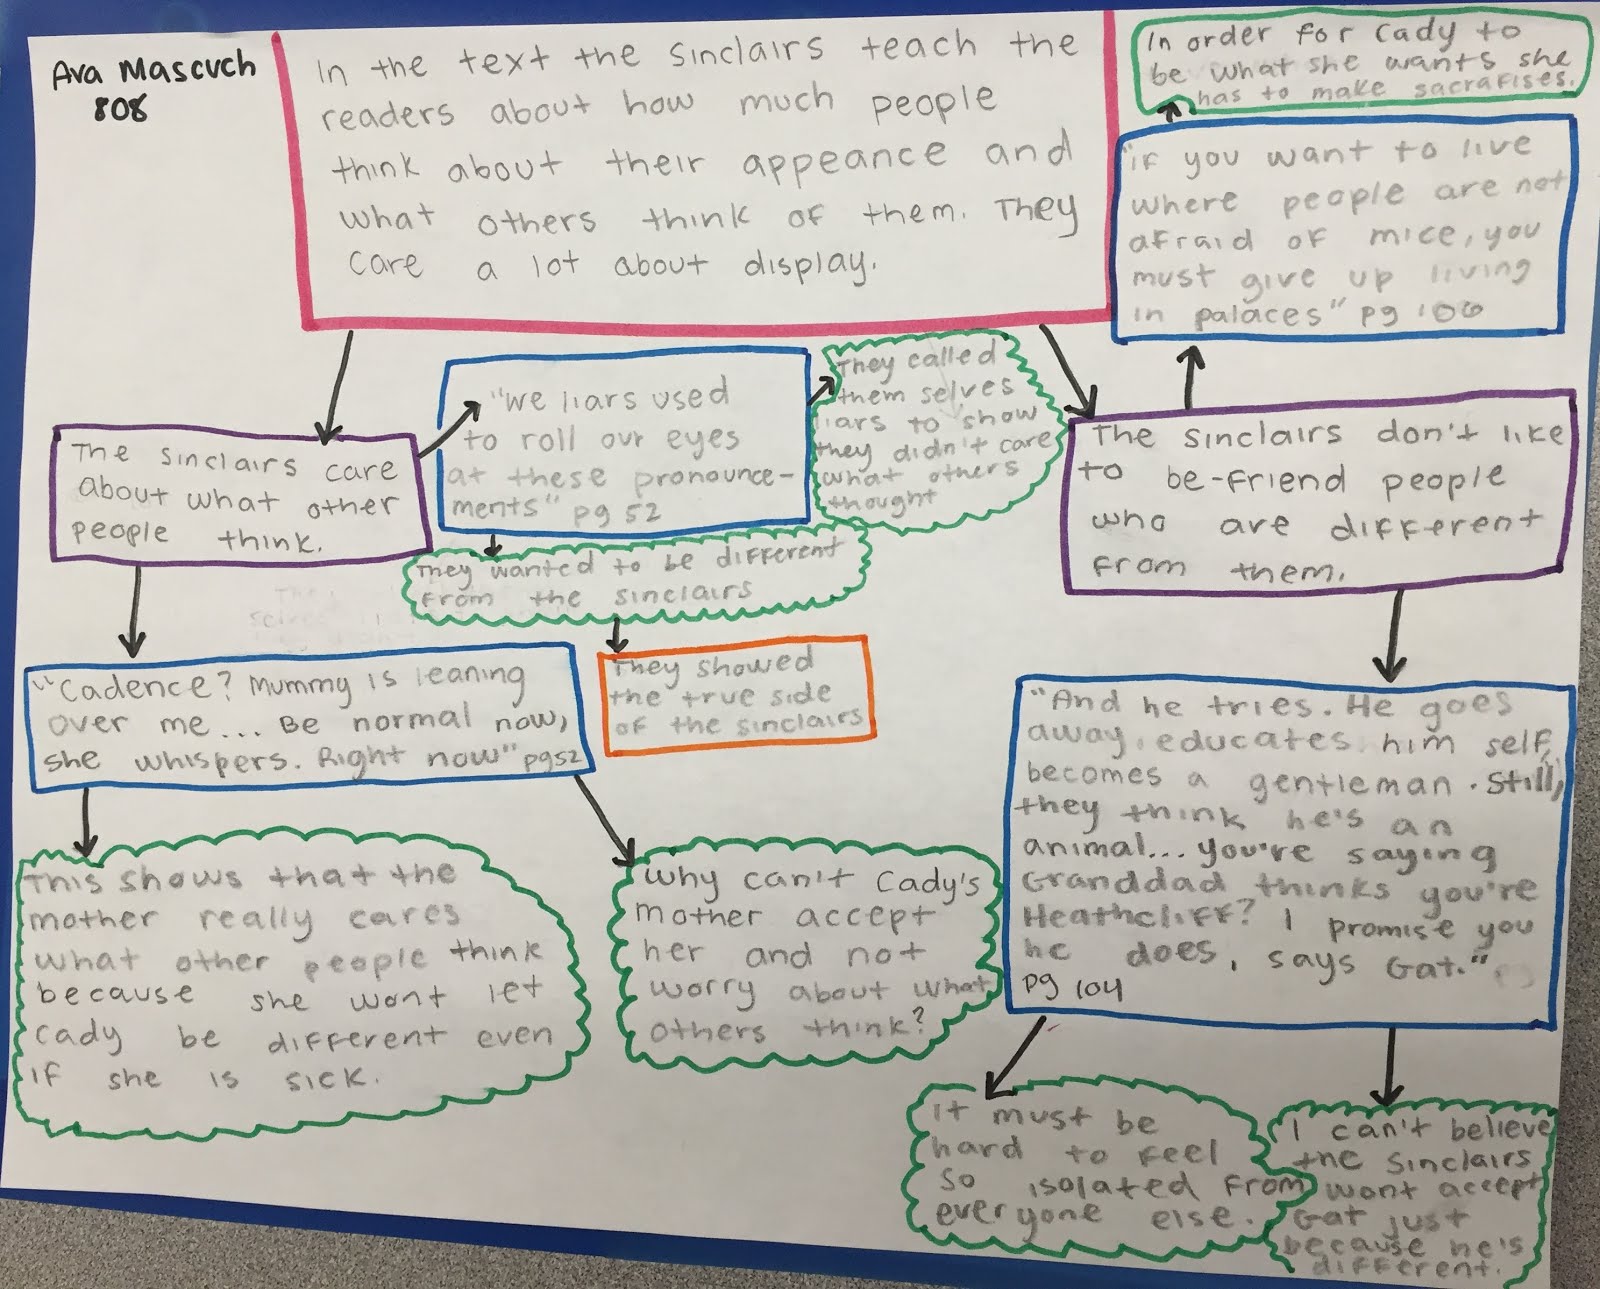 Ava Mascuch
808
In the text the Sinclairs teach the
readers about how much people
think about their appeance and
what others think of them. They
care a lot about display.
In order for Cady to
be what she wants she
has to make sacrafises.
"if you want to live
where people are not
afraid of mice, you
must give up living
in palaces" pg 106
The Sinclairs care
about what other
people think.
"we liars used
to roll our eyes
at these pronounce-
ments" pg 52
They called
them selves
liars to show
they didn't care
what others
thought
The Sinclairs don't like
to be-friend people
who are different
from them.
They wanted to be different
from the Sinclairs
They showed
the true side
of the Sinclairs
"Cadence? Mummy is leaning
over me... Be normal now,
she whispers. Right now" pg52
This shows that the
mother really cares
what other people think
because she wont let
Cady be different even
if she is sick.
Why can't Cady's
mother accept
her and not
worry about what
others think?
"And he tries. He goes
away, educates him self,
becomes a gentleman. Still,
they think he's an
animal... you're saying
Granddad thinks you're
Heathcliff? I promise you
he does, says Gat."
pg 104
It must be
hard to feel
so isolated from
everyone else.
I can't believe
the Sinclairs
wont accept
Gat just
because he's
different.